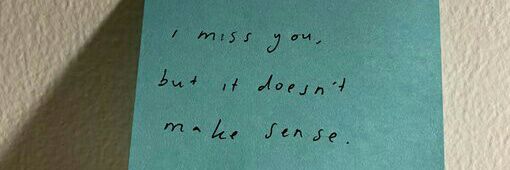 i miss you,
but it doesn't
make sense.